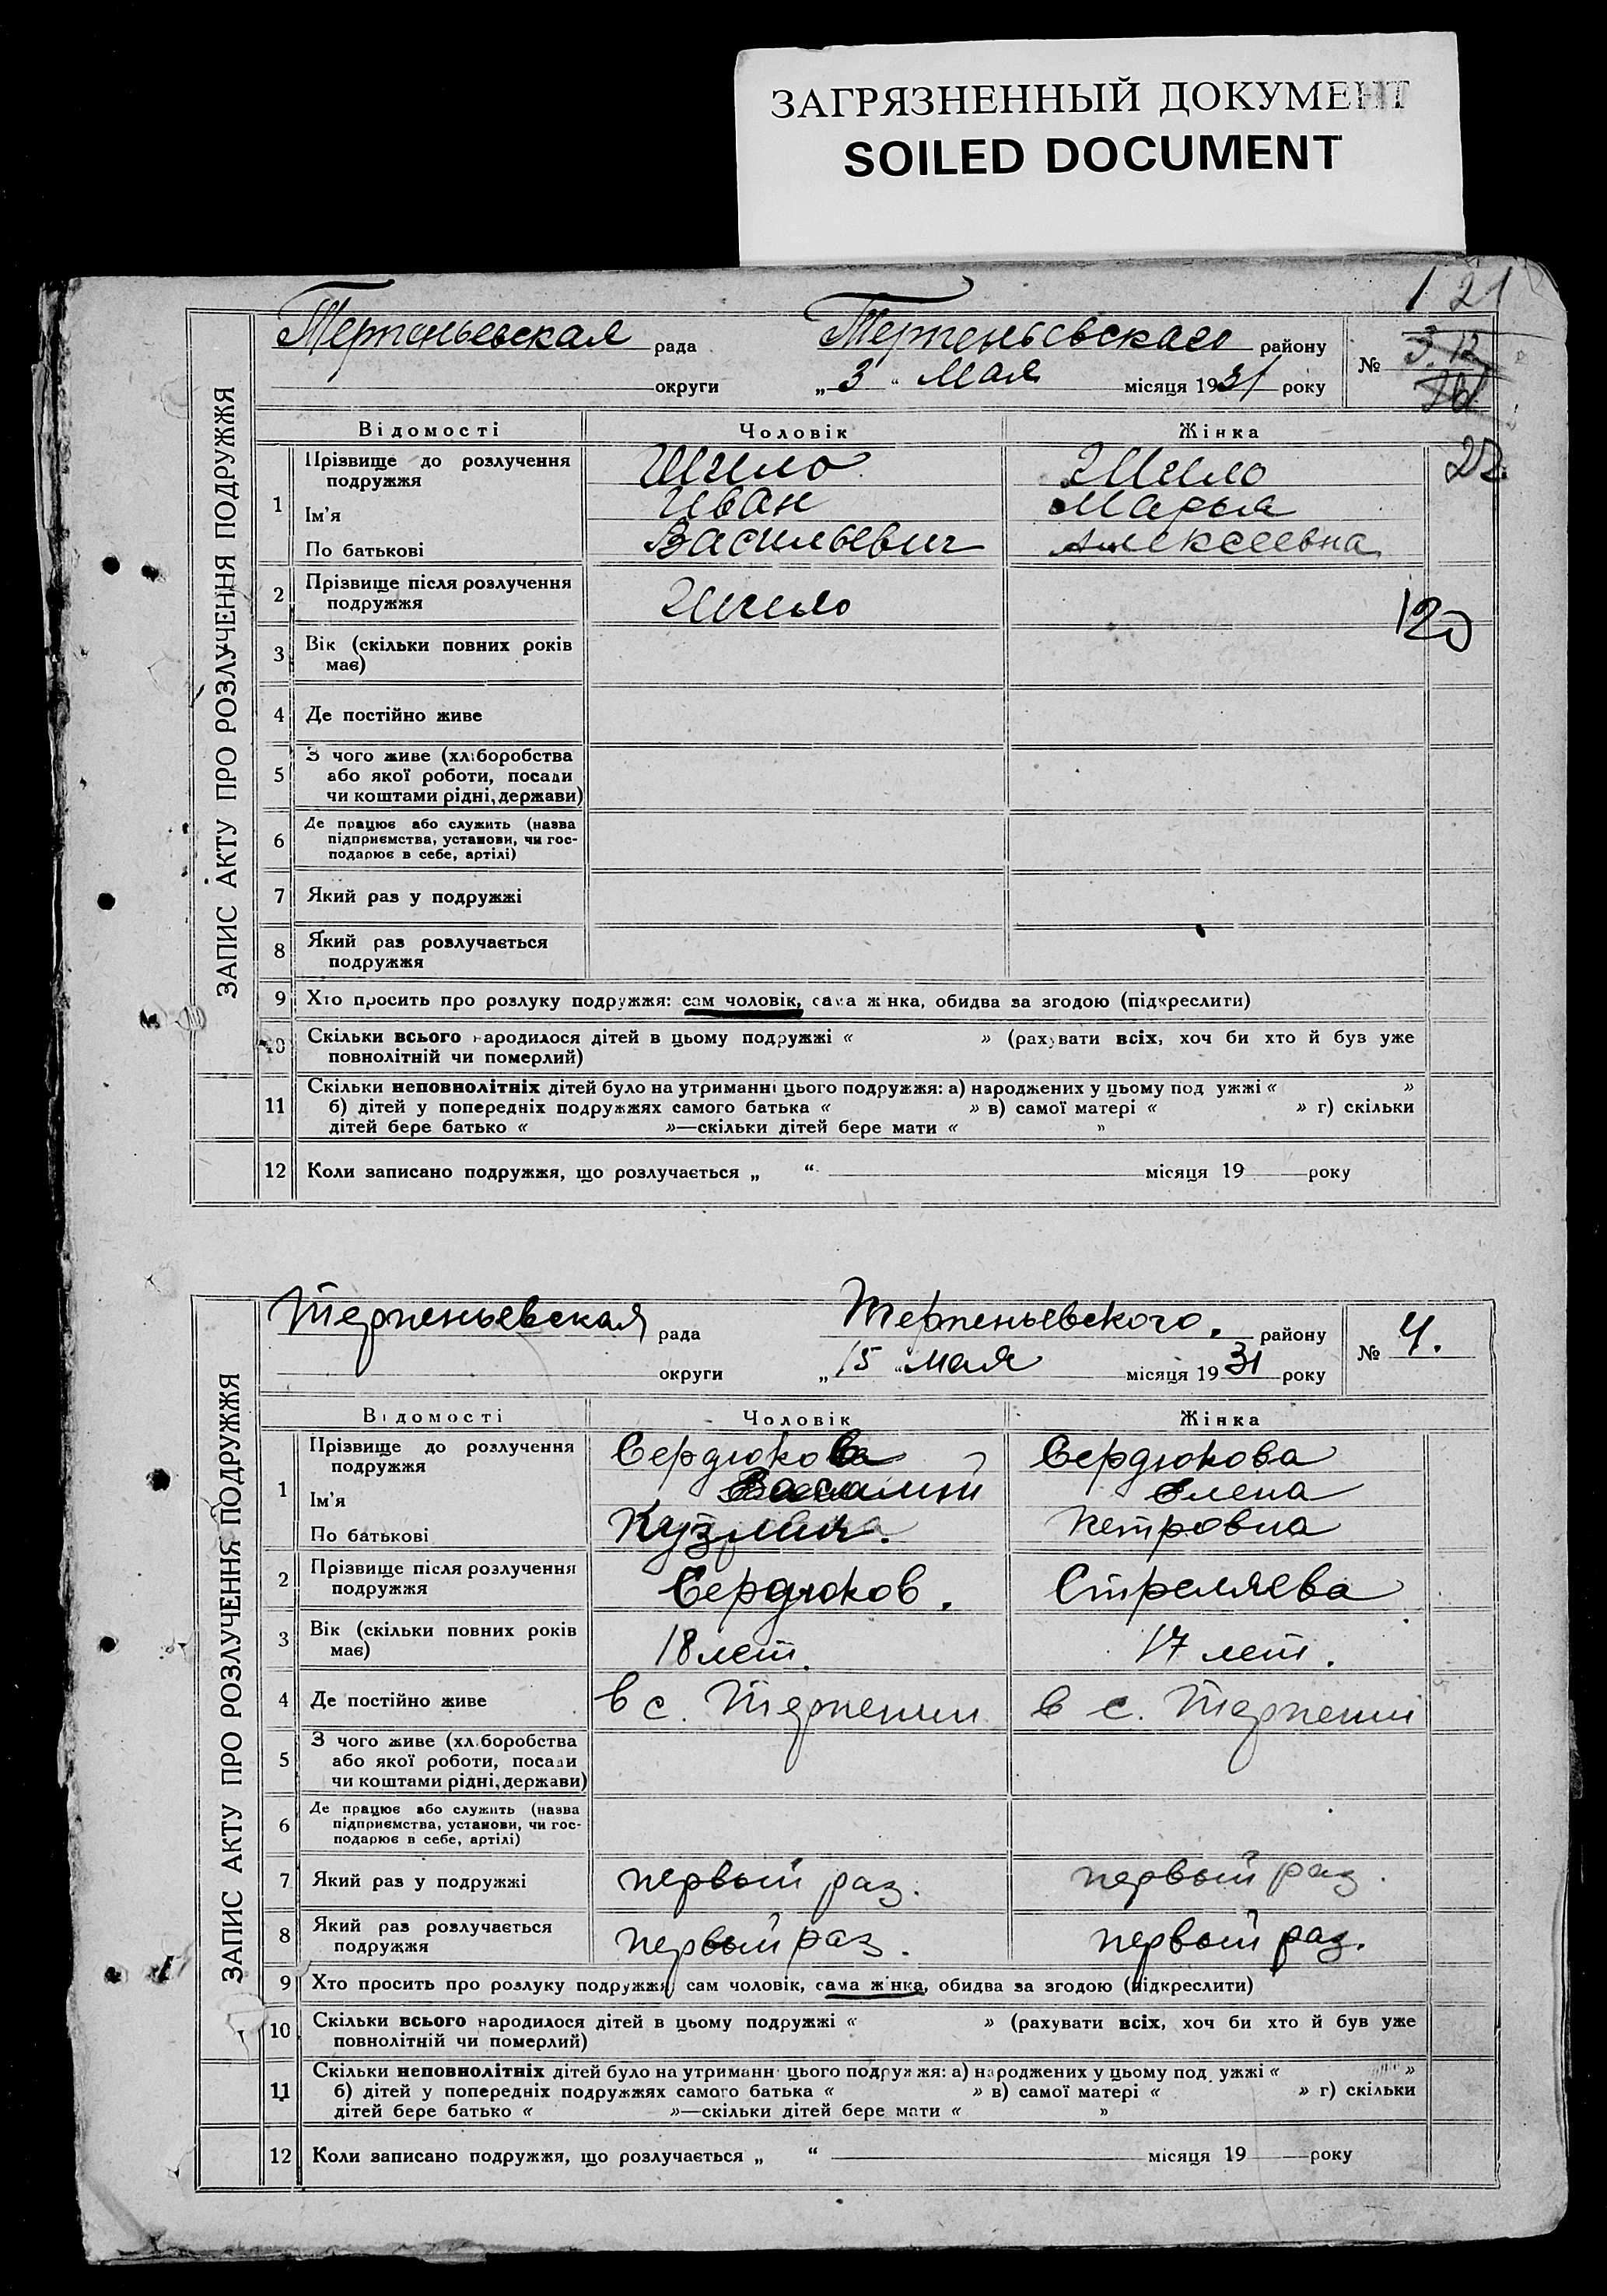 ЗАГРЯЗНЕННЫЙ ДОКУМЕНТ
SOILED DOCUMENT
1 21
ЗАПИС АКТУ ПРО РОЗЛУЧЕННЯ ПОДРУЖЖЯ
Терпеньевская рада Терпеньевского району
№
округи „3“ Мая місяця 1931 року
Відомості Чоловік Жінка
22
1 Прізвище до розлучення подружжя Шило Шило
Ім’я Иван Марья
По батькові Васильевич Алексеевна
2 Прізвище після розлучення подружжя Шило
120
3 Вік (скільки повних років має)
4 Де постійно живе
5 З чого живе (хліборобства
або якої роботи, посади
чи коштами рідні, держави)
6 Де працює або служить (назва
підприємства, установи, чи гос-
подарює в себе, артілі)
7 Який раз у подружжі
8 Який раз розлучається
подружжя
9 Хто просить про розлуку подружжя: сам чоловік, сама жінка, обидва за згодою (підкреслити)
10 Скільки всього народилося дітей в цьому подружжі « » (рахувати всіх, хоч би хто й був уже
повнолітній чи померлий)
11 Скільки неповнолітніх дітей було на утриманні цього подружжя: а) народжених у цьому подружжі « »
б) дітей у попередніх подружжях самого батька « » в) самої матері « » г) скільки
дітей бере батько « »—скільки дітей бере мати « »
12 Коли записано подружжя, що розлучається „ “ місяця 19 року
ЗАПИС АКТУ ПРО РОЗЛУЧЕННЯ ПОДРУЖЖЯ
Терпеньевская рада Терпеньевского. району
№ 4.
округи „15“ мая місяця 1931 року
Відомості Чоловік Жінка
1 Прізвище до розлучення подружжя Сердюков Сердюкова
Ім’я Василий Елена
По батькові Кузмич. Петровна
2 Прізвище після розлучення подружжя Сердюков. Стреляева
3 Вік (скільки повних років має) 18 лет. 17 лет.
4 Де постійно живе в с. Терпении в с. Терпении
5 З чого живе (хліборобства
або якої роботи, посади
чи коштами рідні, держави)
6 Де працює або служить (назва
підприємства, установи, чи гос-
подарює в себе, артілі)
7 Який раз у подружжі первый раз. первый раз.
8 Який раз розлучається подружжя первый раз. первый раз.
9 Хто просить про розлуку подружжя: сам чоловік, сама жінка, обидва за згодою (підкреслити)
10 Скільки всього народилося дітей в цьому подружжі « » (рахувати всіх, хоч би хто й був уже
повнолітній чи померлий)
11 Скільки неповнолітніх дітей було на утриманні цього подружжя: а) народжених у цьому подружжі « »
б) дітей у попередніх подружжях самого батька « » в) самої матері « » г) скільки
дітей бере батько « »—скільки дітей бере мати « »
12 Коли записано подружжя, що розлучається „ “ місяця 19 року